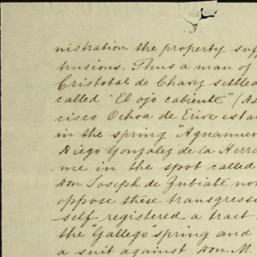 nistration the property suf
trusions. Thus a man of
Cristobal de Chavez settled
called "El ojo caliente" (As
cisco Ochoa de Erive esta
in the spring Agnamen
Diego Gonzalez de la Herra
me in the spot called
Don Joseph de Zubiate no
oppose these transgressi
self registered a tract
the "Gallego spring and
a suit against Don M